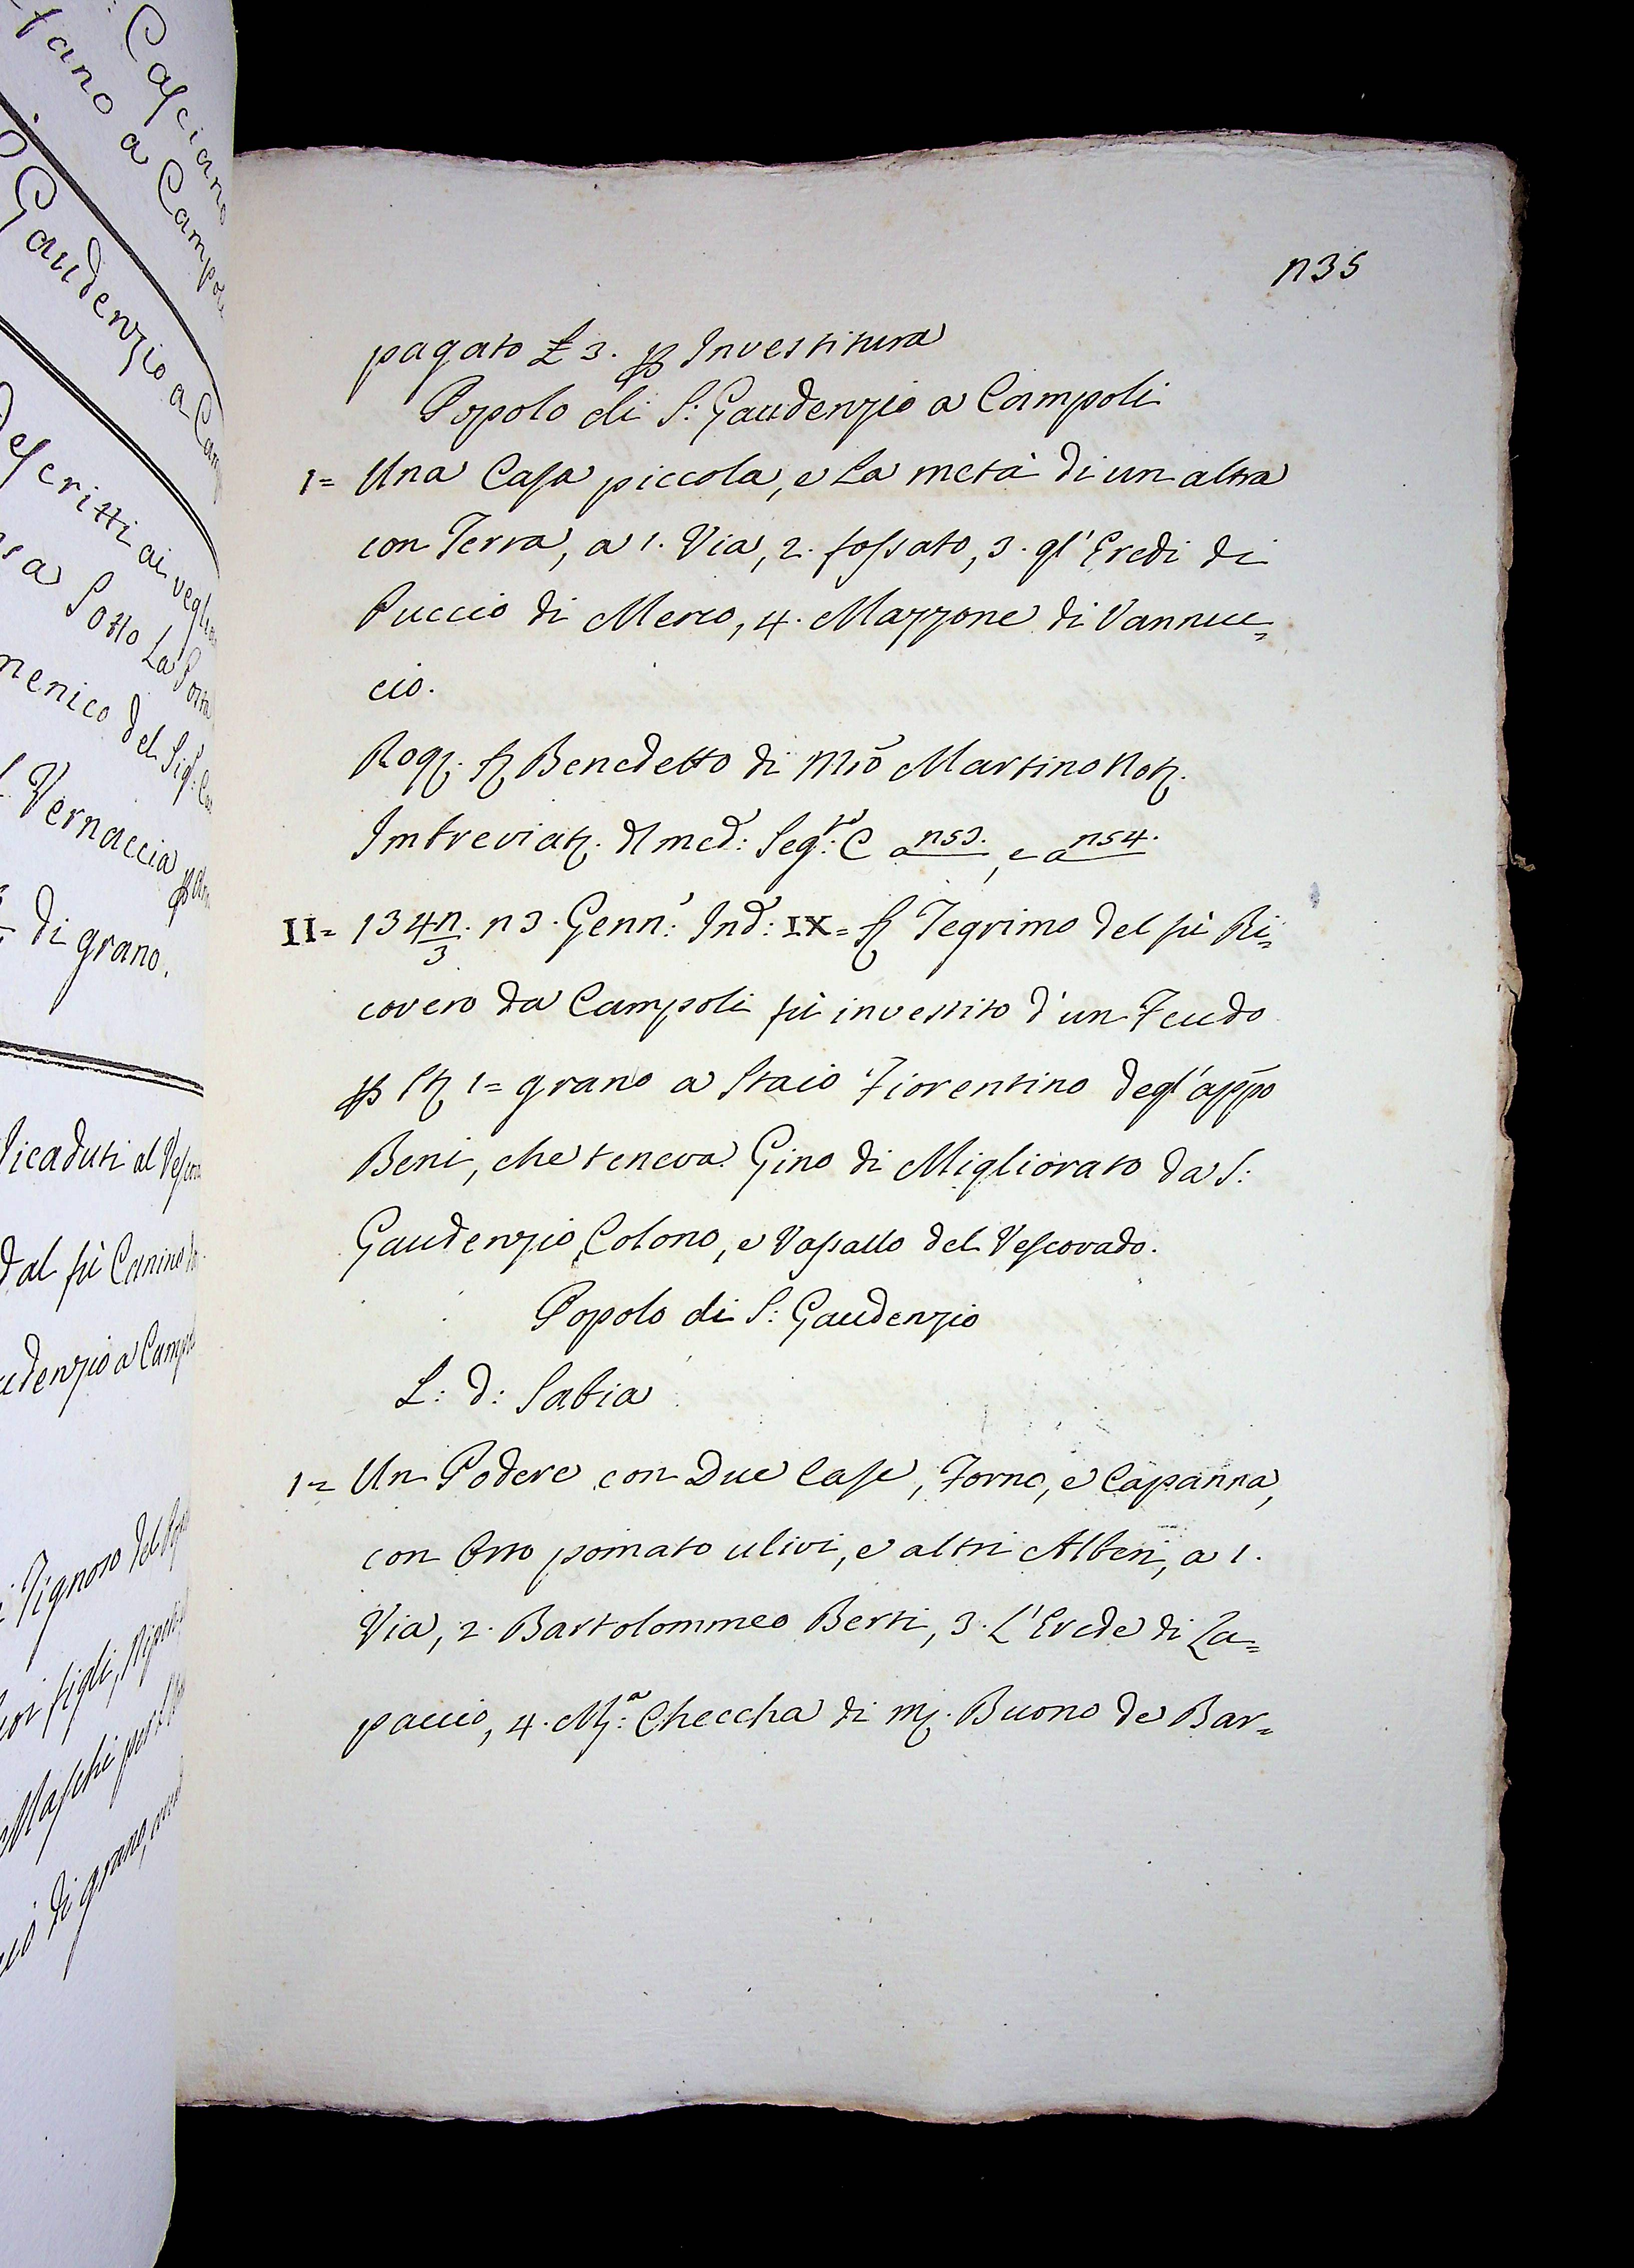 Casciano
fano a Campoli
Gaudenzio a Cam
descritti ai veglia
sa Sotto La Porta
menico del Sig.
Vernaccia
di grano.
Ricaduti al Vesco
dal fù Canino
udenzio a Campol
Tignoso del
figli,
Maschi per
di grano,
n35
pagato £ 3. ꝑ Investitura
Popolo di S: Gaudenzio a Campoli
1= Una Casa piccola, e La metà di un altra
con Terra, a 1. Via, 2. fossato, 3. gl'Eredi di
Puccio di Merco, 4. Mazzone di Vannuc=
cio.
Rog. S. Benedetto di Mrõ Martino Not.
Imbreviat. dl med: Seg: C a n53., e a n54.
II= 134n/3. n3. Genn: Ind: IX= S. Tegrimo del fù Ri=
covero da Campoli fù investito d'un Feudo
ꝑ St. 1= grano a Staio Fiorentino degl'appõ
Beni, che teneva Gino di Migliorato da S:
Gaudenzio, Colono, e Vassallo del Vescovado.
Popolo di S: Gaudenzio
L: d: Sabia
1= Un Podere con Due Case, Forno, e Capanna,
con Orto pomato ulivi, e altri Alberi, a 1.
Via, 2. Bartolommeo Berti, 3. L'Erede di La=
paccio, 4. M:ª Checcha di m. Buono de Bar=